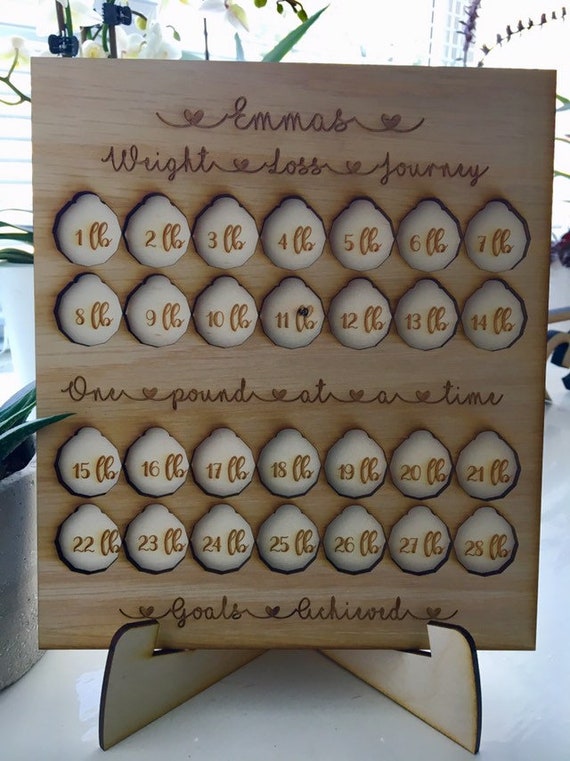 Emmas
Weight Loss Journey
1 lb 2 lb 3 lb 4 lb 5 lb 6 lb 7 lb
8 lb 9 lb 10 lb 11 lb 12 lb 13 lb 14 lb
One pound at a time
15 lb 16 lb 17 lb 18 lb 19 lb 20 lb 21 lb
22 lb 23 lb 24 lb 25 lb 26 lb 27 lb 28 lb
Goals Achieved